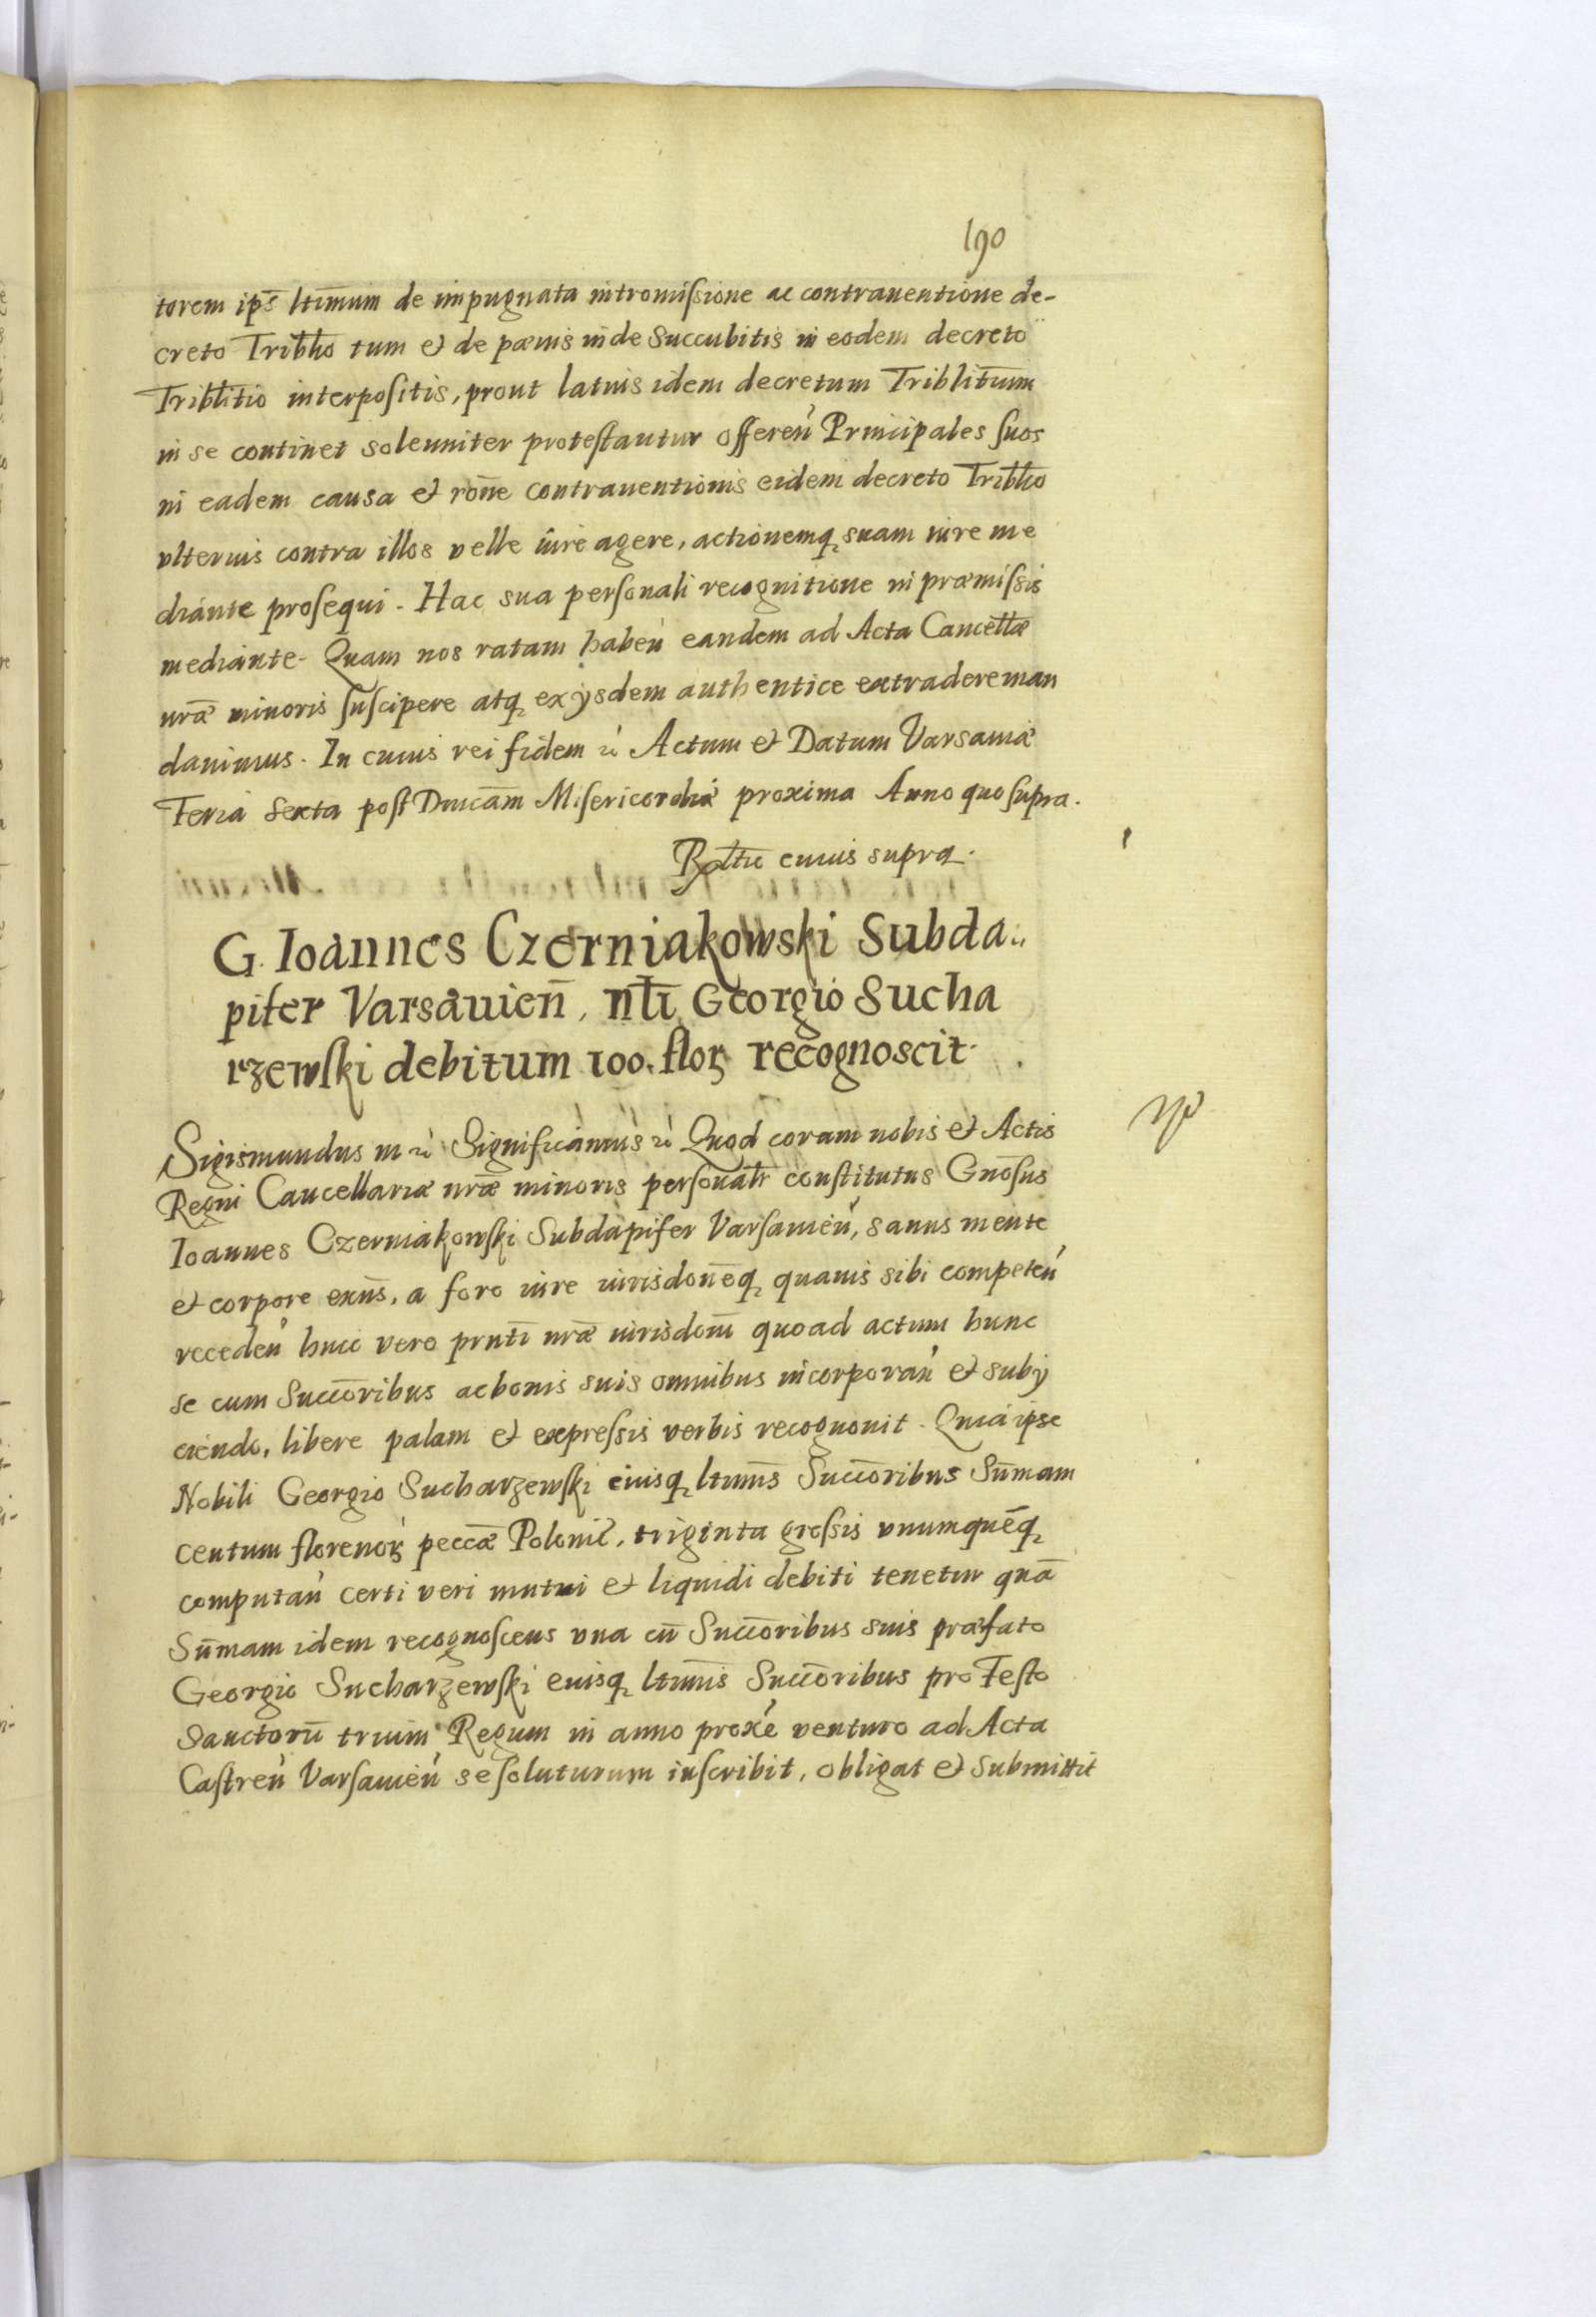 190
torem ips̄ ltimum de impugnata intromissione ac contrauentione de-
creto Tribllo tum et de pœnis inde succubitis in eodem decreto
Triblitio interpositis, prout latius idem decretum Triblitium
in se continet solenniter protestantur offereñ Principales suos
in eadem causa et rōne contrauentionis eidem decreto Tribllo
vlterius contra illos velle iure agere, actionemq suam iure me
diante prosequi. Hac sua personali recognitione in præmissis
mediante. Quam nos ratam habeñ eandem ad Acta Cancellæ
nrǣ minoris suscipere atq ex ijsdem authentice extradere man
dauimus. In cuius rei fidem &c Actum et Datum Varsauiæ
Feria sexta post Dnicām Misericordiæ proxima Anno quo supra.
Rltio cuius supra.
G. Ioannes Czerniakowski Subda..
pifer Varsauien̄, nli Georgio Sucha
rzewski debitum 100. flor recognoscit.
Sigismundus III &c Significamus &c Quod coram nobis et Actis
Regni Cancellariæ nrǣ minoris personalr constitutus Gnōsus
Ioannes Czerniakowski Subdapifer Varsauień, sanus mente
et corpore exn̄s, a foro iure iurisdonēq quauis sibi competeń
recedeń huic vero prnti nrǣ iurisdoni quoad actum hunc
se cum Succōribus ac bonis suis omnibus incorporań et subij
ciendo, libere palam et expressis verbis recognouit. Quia ipse
Nobili Georgio Sucharzewski eiusq ltimis Succōribus Sum̄mam
centum florenor peccǣ Poloniē, triginta grossis vnumquēq
computań certi veri mutui et liquidi debiti tenetur quā
Sūmam idem recognoscens vna cū Succōribus suis præfato
Georgio Sucharzewski eiusq ltimis Succōribus pro Festo
Sanctorū trium Regum in anno proxē venturo ad Acta
Castreń Varsauień se soluturum inscribit, obligat et submittit